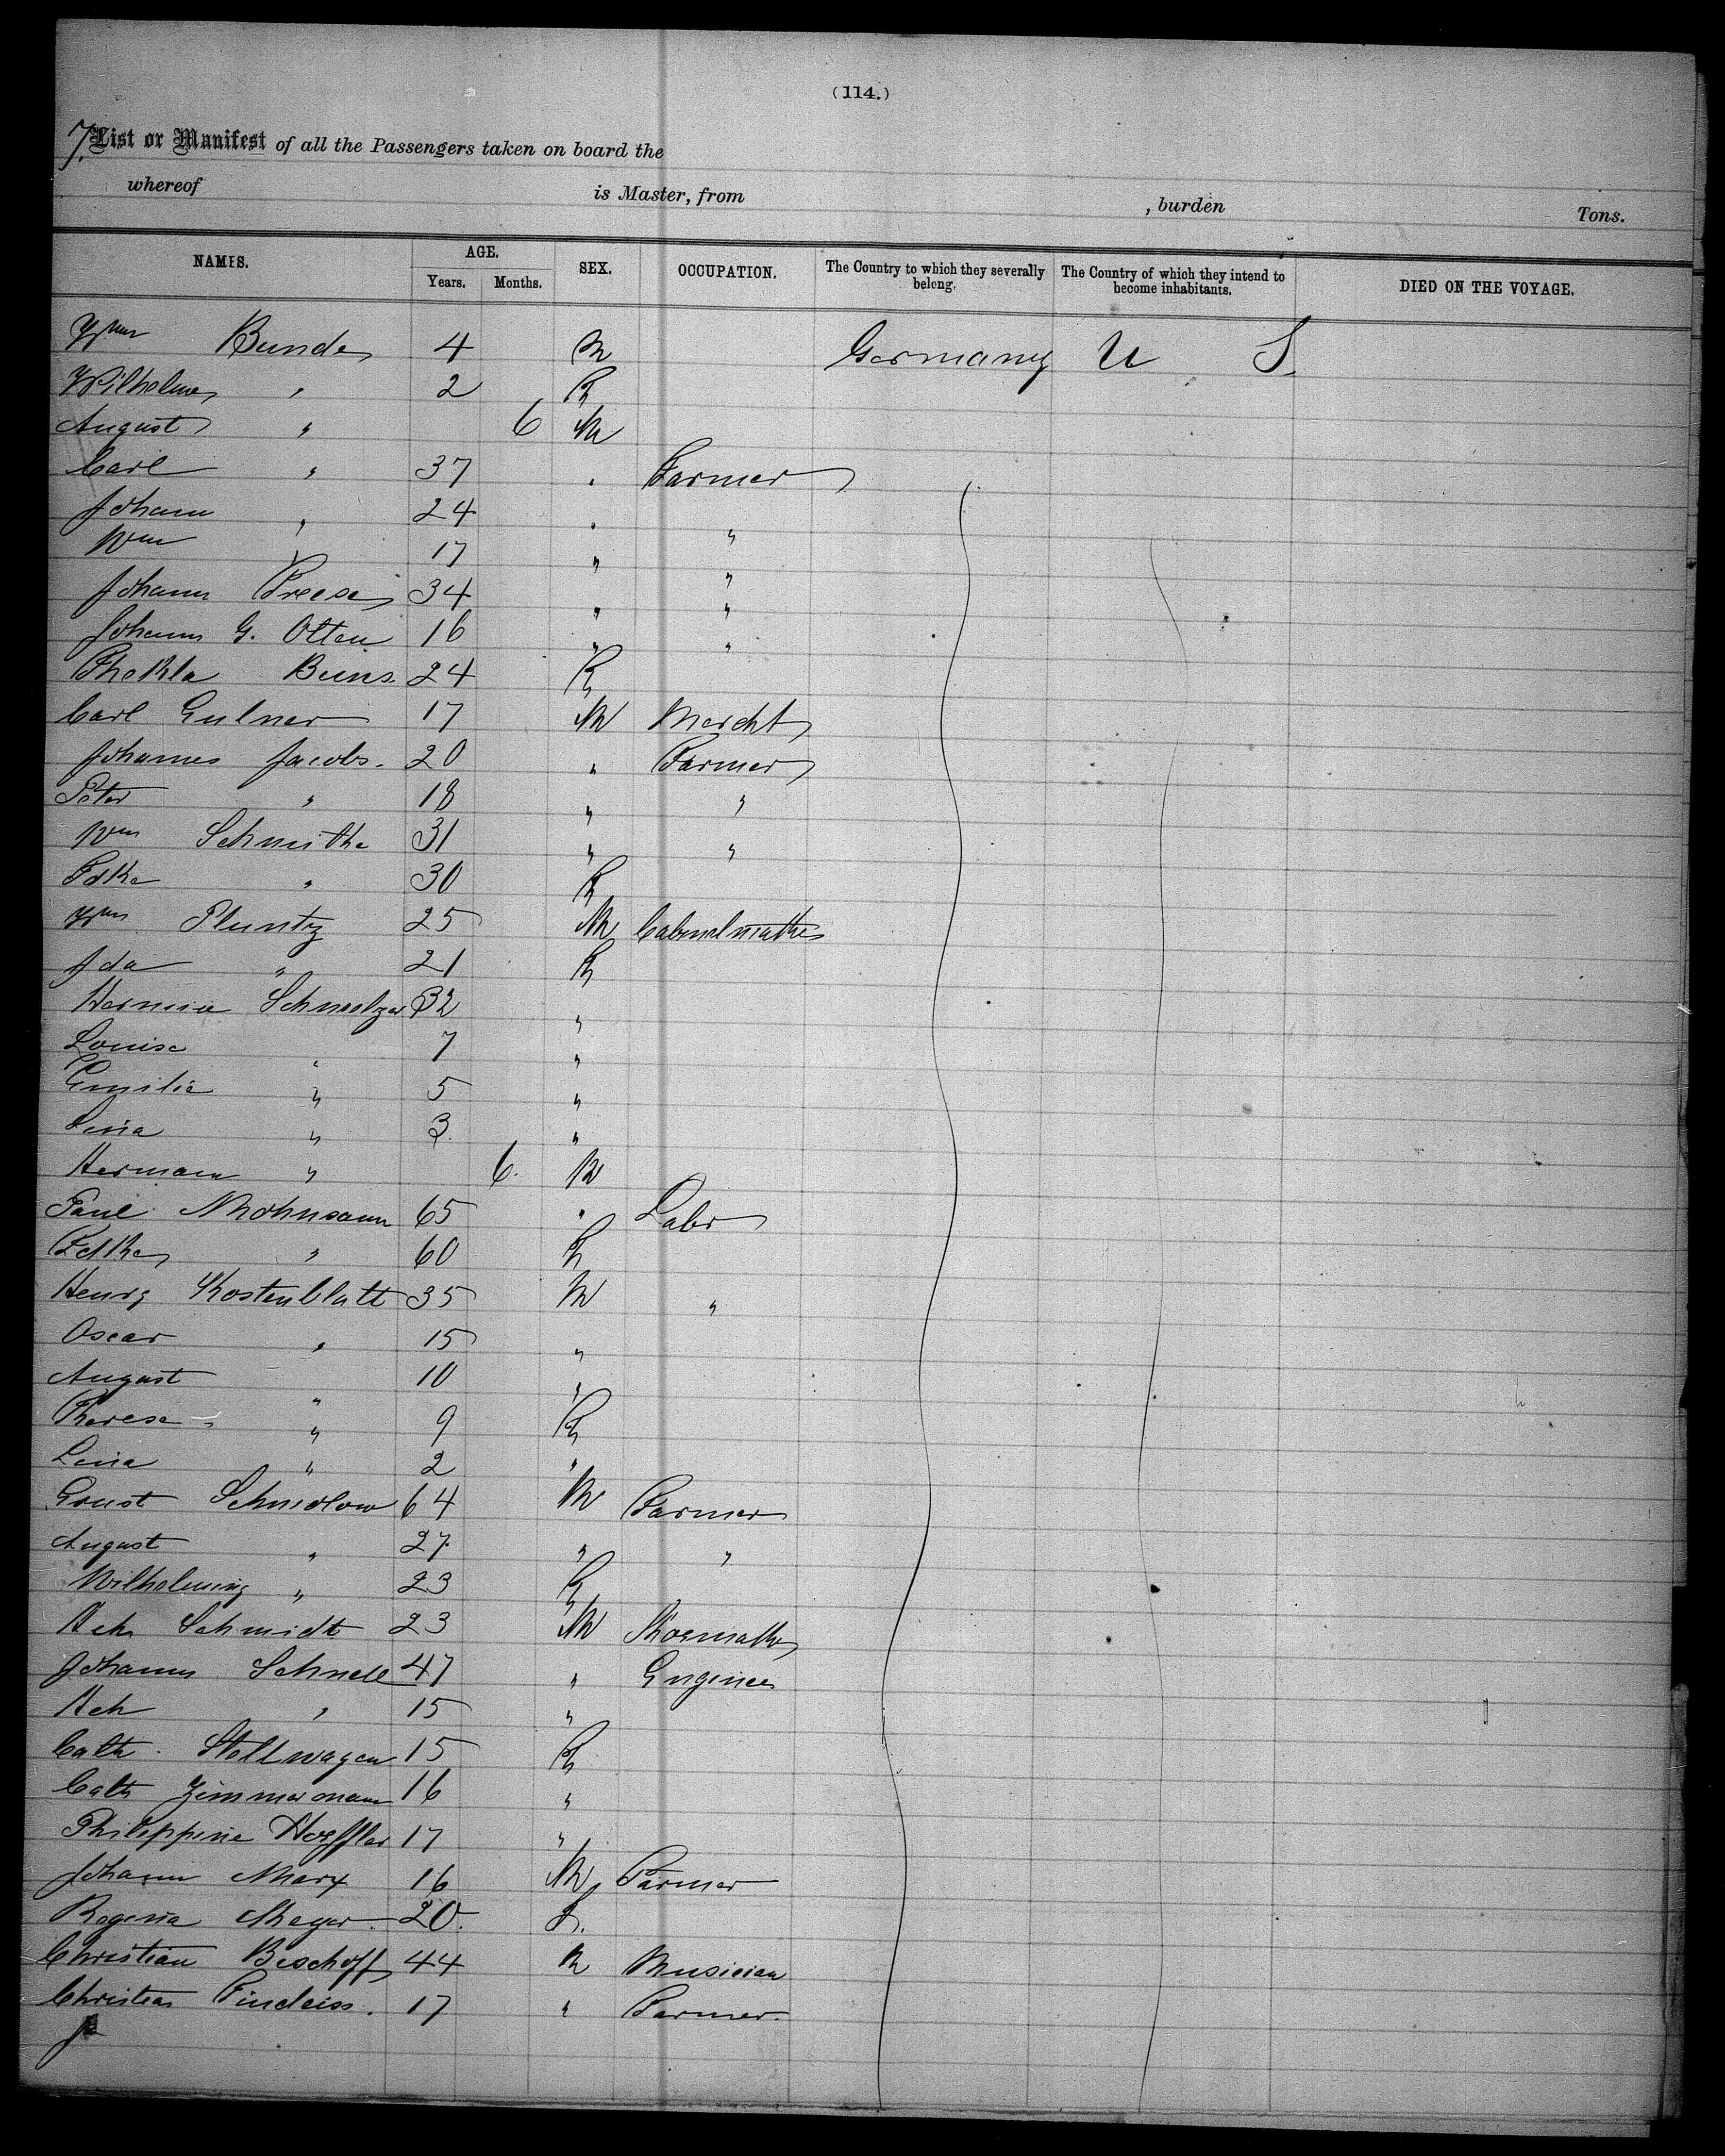 (114.)
7. List or Manifest of all the Passengers taken on board the
whereof is Master, from , burden Tons.
NAMES. AGE. SEX. OCCUPATION. The Country to which they severally belong. The Country of which they intend to become inhabitants. DIED ON THE VOYAGE.
Years. Months.
Wm Bunde 4 M Germany U S
Wilhelme " 2 F
August " 6 M
Carl " 37 " Farmer
Johann " 24 " "
Wm " 17 " "
Johann Preese 34 " "
Johann G. Otten 16 " "
Thekla Buns. 24 F
Carl Gulner 17 M Mercht
Johannes Jacobs. 20 " Farmer
Peter " 18 " "
Wm Schmithe 31 " "
Fdke " 30 F
Wm Pluntz 25 M
Ida " 21 F
Hermine Schmelzer 32 "
Louise " 7 "
Emilie " 5 "
Lina " 3 "
Hermann " 6. M
Paul Mohnsamn 65 " Labr
Fdke " 60 F
Henry Kostenblatt 35 M "
Oscar " 15 "
August " 10 "
Therese " 9 F
Lina " 2 "
Ernst Schmolow 64 M Farmer
August " 27 " "
" 23 F
Hch Schmidt 23 M
Johann Schnell 47 " Engineer
Hch " 15 "
Cath. Stellwagen 15 F
Cath Zimmermann 16 "
Philippine Hoeffler 17 "
Johann Marx 16 M Farmer
Regina Mayer 20. F.
Christian Bischoff 44 M Musician
Christian 17 " Farmer.